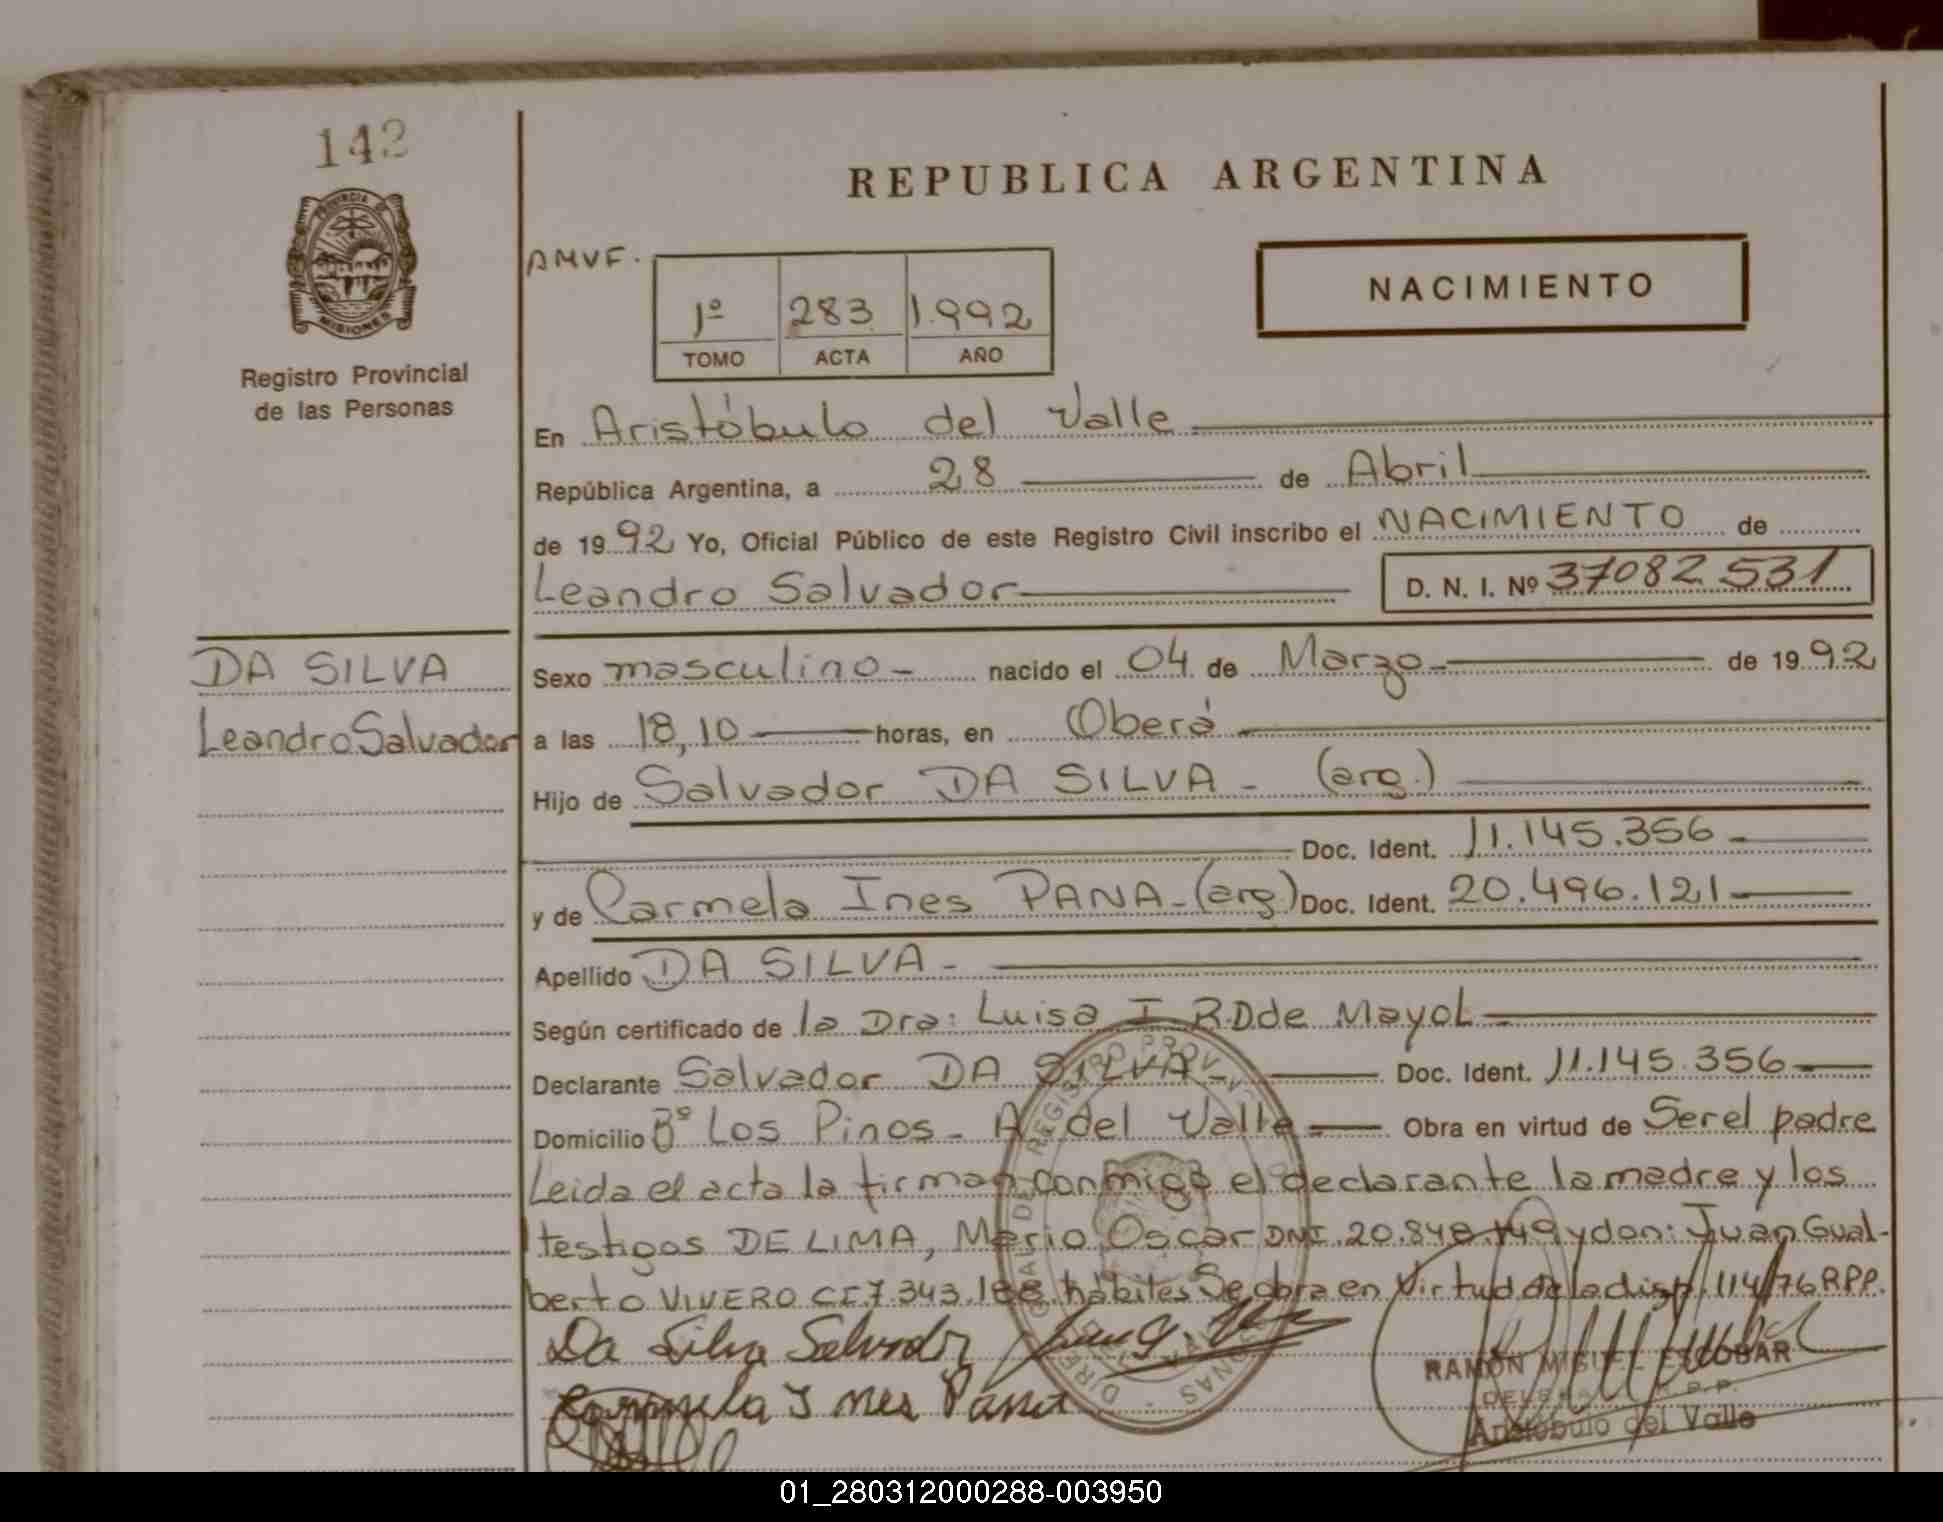 142
PROVINCIA DE
MISIONES
Registro Provincial
de las Personas
REPUBLICA ARGENTINA
AMVF.
1º 283 1.992
TOMO ACTA AÑO
NACIMIENTO
En Aristóbulo del Valle
República Argentina, a 28 de Abril
de 1992 Yo, Oficial Público de este Registro Civil inscribo el NACIMIENTO de
Leandro Salvador D. N. I. Nº 37082531
DA SILVA
Leandro Salvador
Sexo masculino - nacido el 04 de Marzo - de 1992
a las 18,10 horas, en Oberá
Hijo de Salvador DA SILVA - (arg.)
Doc. Ident. 11.145.356 -
y de Carmela Ines PANA - (arg.) Doc. Ident. 20.496.121
Apellido DA SILVA -
Según certificado de la Dra: Luisa I R.D de Mayol
Declarante Salvador DA SILVA - Doc. Ident. 11.145.356
Domicilio Bº Los Pinos - A. del Valle - Obra en virtud de Ser el padre
Leida el acta la firman conmigo el declarante la madre y los
testigos DE LIMA, Mario Oscar DNI. 20.848.149 y don: Juan Gual-
berto VIVERO CI.7.343.188 hábiles Se obra en Virtud de la disp. 114/76 RPP.
Da Silva Salvador
Carmela Ines Pana
RAMÓN MIGUEL ESCOBAR
R.P.P.
Aristóbulo del Valle
01_280312000288-003950